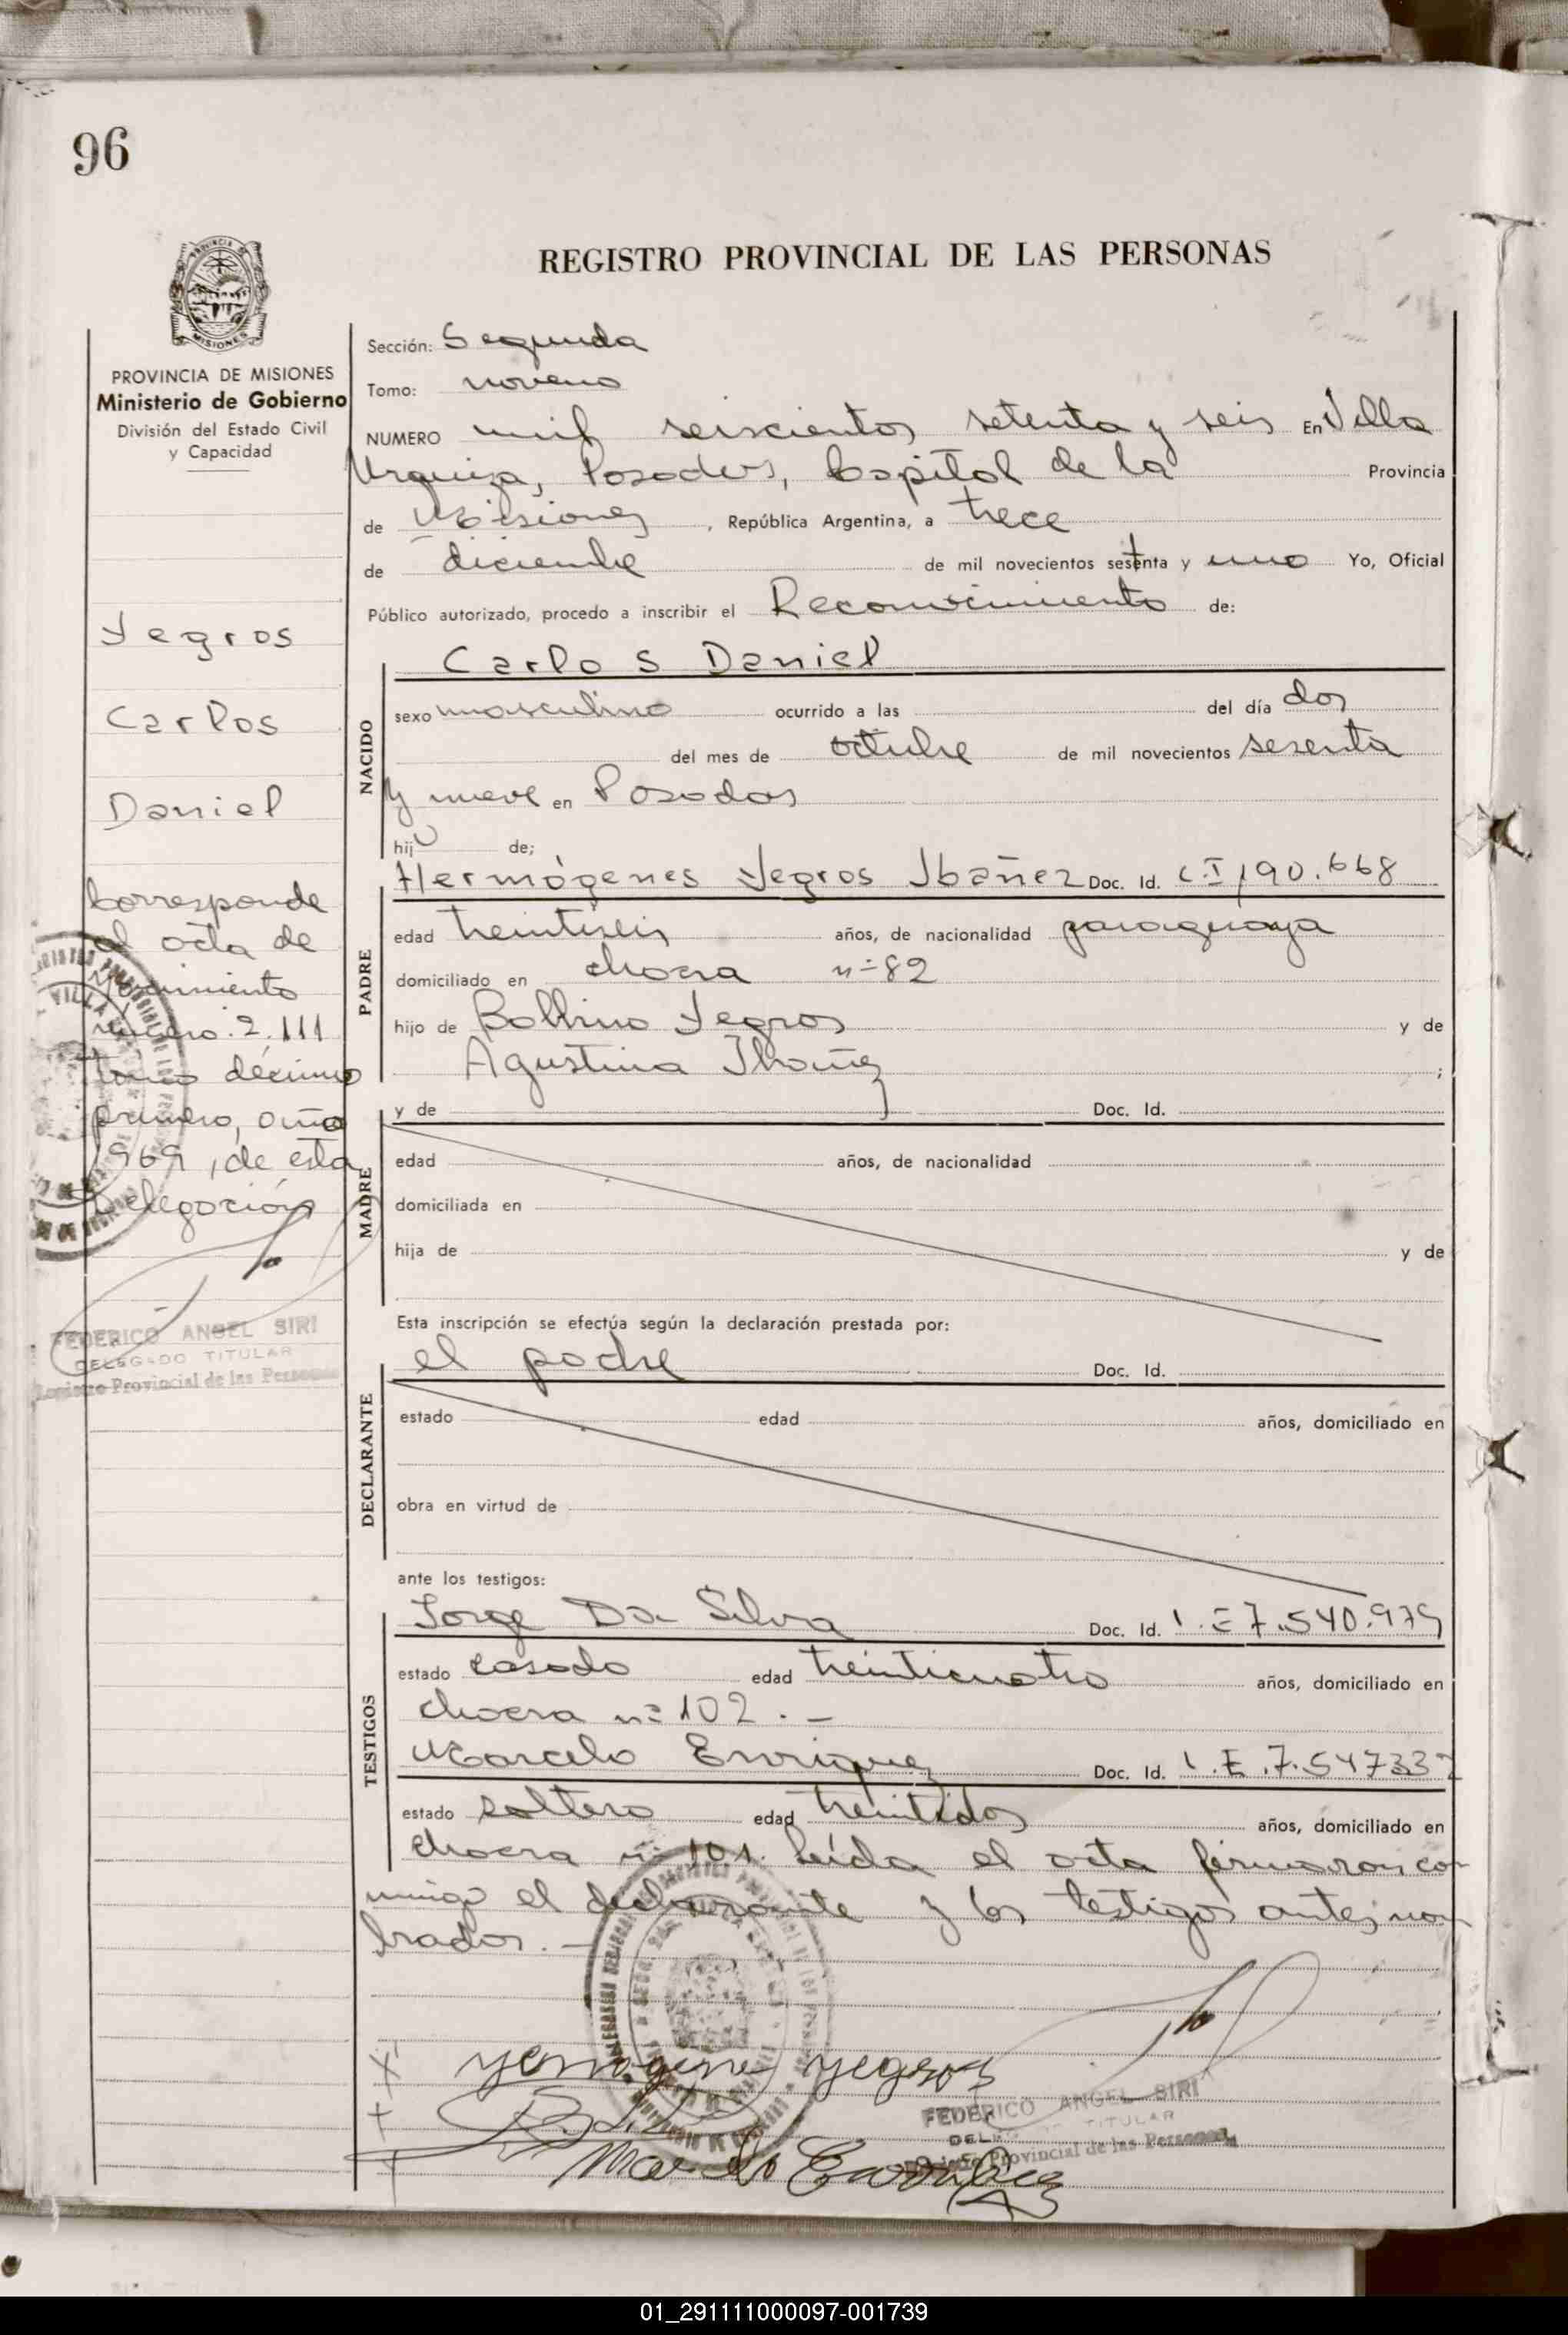 96
REGISTRO PROVINCIAL DE LAS PERSONAS
PROVINCIA DE MISIONES
MISIONES
PROVINCIA DE MISIONES
Ministerio de Gobierno
División del Estado Civil
y Capacidad
Yegros
Carlos
Daniel
Corresponde
al acta de
nacimiento
número 2.111
tomo décimo
primero, año
1969, de esta
Delegación
FEDERICO ANGEL SIRI
DELEGADO TITULAR
Registro Provincial de las Personas
Sección: Segunda
Tomo: noveno
NUMERO mil seiscientos setenta y seis En Villa
Urquiza, Posadas, Capital de la Provincia
de Misiones, República Argentina, a trece
de diciembre de mil novecientos setenta y uno Yo, Oficial
Público autorizado, procedo a inscribir el Reconocimiento de:
Carlos Daniel
NACIDO
sexo masculino ocurrido a las del día dos
del mes de octubre de mil novecientos sesenta
y nueve en Posadas
hijo de;
Hermógenes Yegros Ibañez Doc. Id. C.I 190.668
PADRE
edad treintiseis años, de nacionalidad paraguaya
domiciliado en chacra nº 82
hijo de Yegros y de
Agustina Ibañez ;
MADRE
y de Doc. Id.
edad años, de nacionalidad
domiciliada en
hija de y de
Esta inscripción se efectúa según la declaración prestada por:
el padre Doc. Id.
DECLARANTE
estado edad años, domiciliado en
obra en virtud de
ante los testigos:
Jorge Da Silva Doc. Id. L.E 7.540.979
TESTIGOS
estado casado edad treinticuatro años, domiciliado en
chacra nº 102.-
Marcelo Enriquez Doc. Id. L.E.7.547332
estado soltero edad treintidos años, domiciliado en
chacra nº 101. Leída el acta firmaron con
migo el declarante y los testigos antes nom
brados.-
yermogene yegros
FEDERICO ANGEL SIRI
DELEGADO TITULAR
Registro Provincial de las Personas
Marcelo Enriquez
01_291111000097-001739